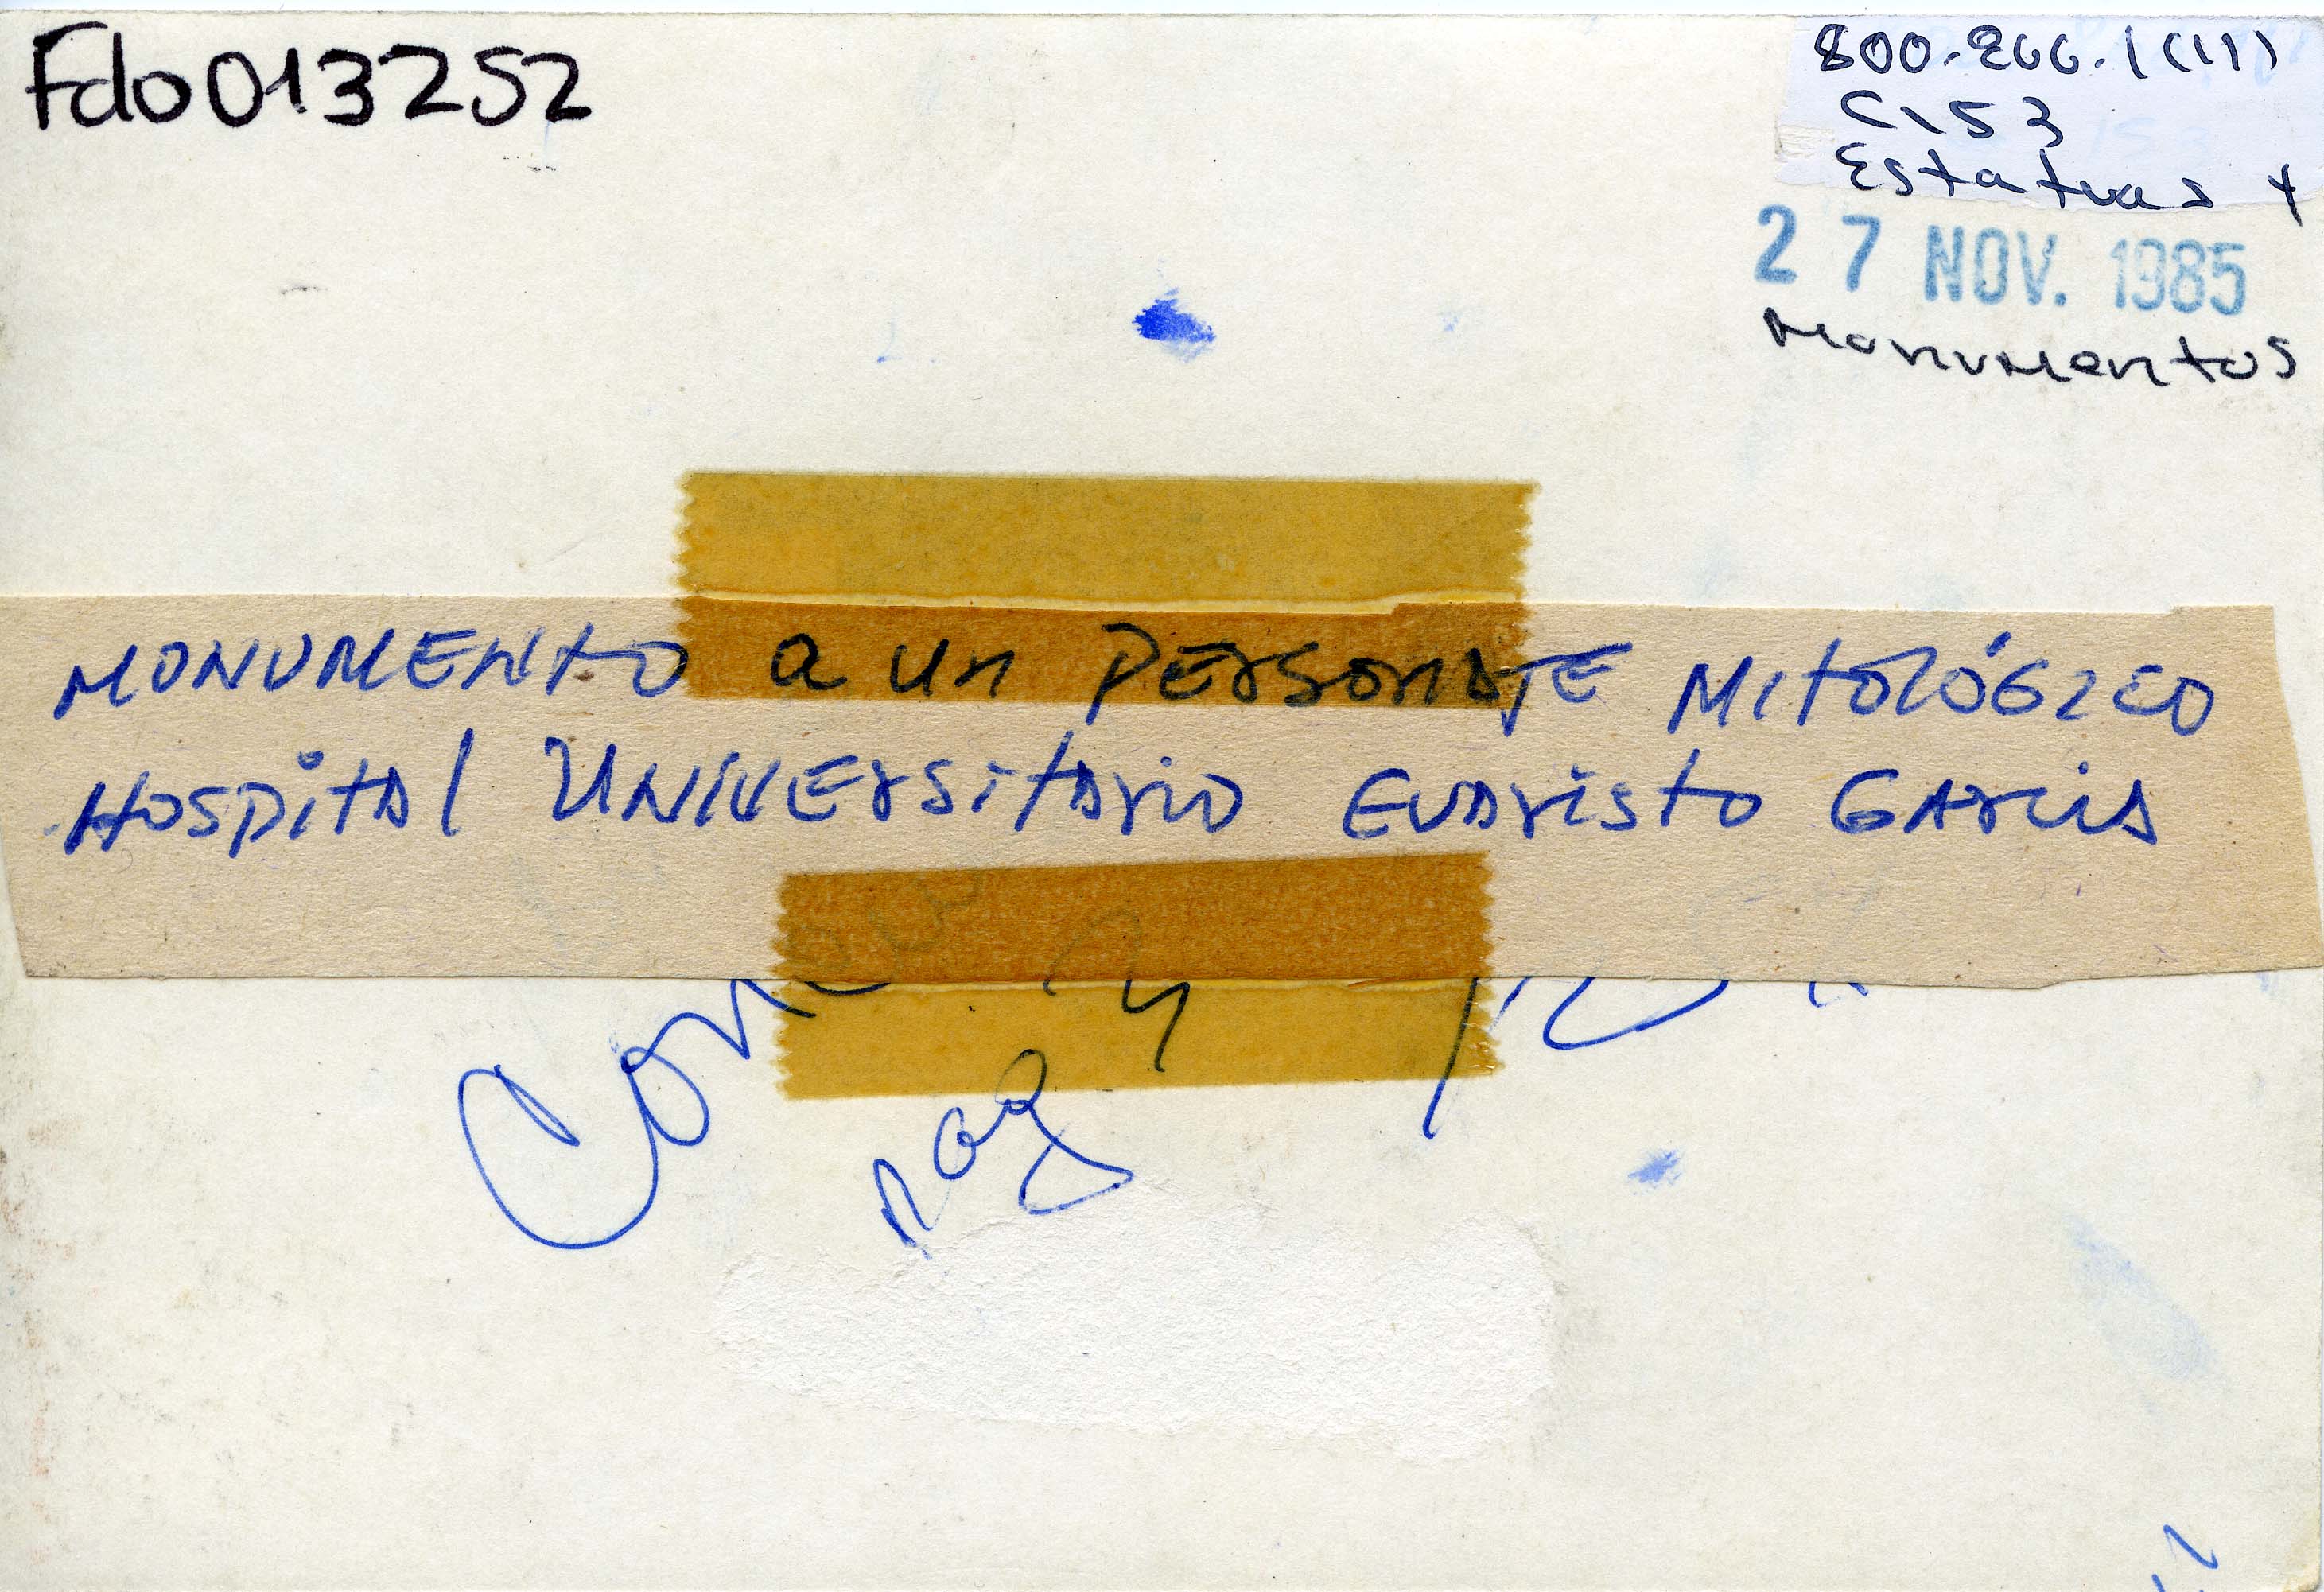 Fdo013252
800.266.1(11)
C153
Estatuas y
27 NOV. 1985
Monumentos
MONUMENTO a un PERSONAJE MITOLÓGICO
HOSPITAL UNIVERSITARIO EVARISTO GARCIA
pag